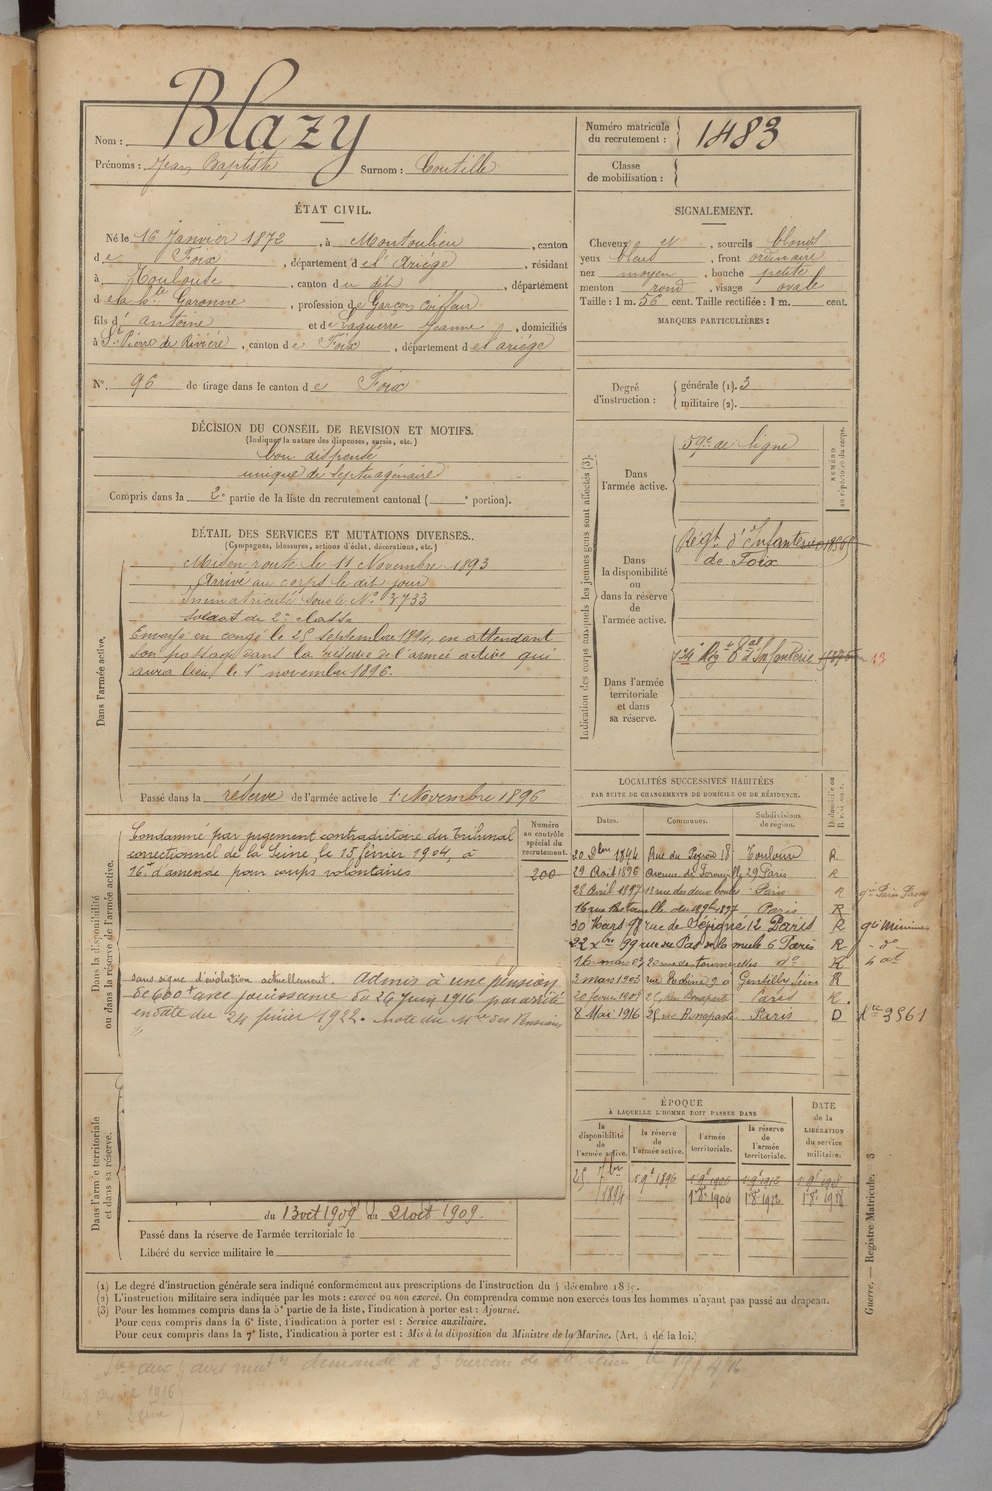 Nom : Blazy
Prénoms : Jean Baptiste Surnom :
Numéro matricule du recrutement : 1483
Classe de mobilisation :
ÉTAT CIVIL.
Né le 16 Janvier 1872, à Montoulieu, canton
de Foix, département de l'Ariège, résidant
à Toulouse, canton du dit, département
de la hte Garonne, profession de Garçon Coiffeur
fils d'antoine et de Laguerre Jeanne, domiciliés
à St Pierre de Rivière, canton de Foix, département de l'ariège
No. 96 de tirage dans le canton de Foix
DÉCISION DU CONSEIL DE REVISION ET MOTIFS.
(Indiquer la nature des dispenses, sursis, etc.)
bon dispensé
unique de septuagénaire
Compris dans la 2e partie de la liste du recrutement cantonal ( e portion).
SIGNALEMENT.
Cheveux et, sourcils blonds
yeux bleus, front ordinaire
nez moyen, bouche petite
menton rond, visage ovale
Taille : 1 m. 56 cent. Taille rectifiée : 1 m. cent.
MARQUES PARTICULIÈRES :
Degré d'instruction : générale (1). 3
militaire (2).
DÉTAIL DES SERVICES ET MUTATIONS DIVERSES.
(Campagnes, blessures, actions d'éclat, décorations, etc.)
Dans l'armée active.
Mis en route le 11 Novembre 1893
Arrivé au corps le dit jour
Immatriculé sous le No 3733
Soldat de 2e classe
Envoyé en congé le 25 Septembre 1894, en attendant
son passage dans la réserve de l'armée active qui
aura lieu le 1er novembre 1896.
Passé dans la réserve de l'armée active le 1er Novembre 1896
Indication des corps auxquels les jeunes gens sont affectés (3).
NUMÉRO au répertoire du corps.
Dans l'armée active.
59e de ligne
Dans la disponibilité ou dans la réserve de l'armée active.
Régt d'Infanterie
de Foix
Dans l'armée territoriale et dans sa réserve.
Rég t d'Infanterie
13
Dans la disponibilité ou dans la réserve de l'armée active.
Numéro au contrôle spécial du recrutement.
200
Condamné par jugement contradictoire du Tribunal
correctionnel de la Seine, le 15 février 1904, à
16f d'amende pour coups volontaires
sans signe d'évolution actuellement. Admis à une pension
de 600f avec jouissance du 26 Juin 1916 par arrêté
en date du 24 février 1922. note du Mre des Pensions
Dans l'armée territoriale et dans sa réserve.
du 13 oct 1909 au 21 oct 1909.
Passé dans la réserve de l'armée territoriale le
Libéré du service militaire le
LOCALITÉS SUCCESSIVES HABITÉES
PAR SUITE DE CHANGEMENTS DE DOMICILE OU DE RÉSIDENCE.
Dates. Communes. Subdivisions de région. Domicile ou Résidence.
20 9bre 1894 Rue du 18 Toulouse R
29 Août 1896 Avenue de 29 Paris R
28 Avril 1897 13 rue des deux boules Paris R
16 rue 1897 Paris R
30 Mars 98 rue de Sévigné 12 Paris R
22 Xbre 99 rue du Pas de la mule 6 Paris R
16 mars 03 20 rue de tournelles do R
3 mars 1905 rue 20 Gentilly Seine R
20 février 1908 25 Rue Bonaparte Paris R.
8 Mai 1916 25 rue Bonaparte Paris D
3561
ÉPOQUE
À LAQUELLE L'HOMME DOIT PASSER DANS
la disponibilité de l'armée active.
la réserve de l'armée active.
l'armée territoriale.
la réserve de l'armée territoriale.
DATE de la LIBÉRATION du service militaire.
25 7bre 1894 1 9t 1896 1 9t 1906 1 9t 1912 1 9t 1918
1 8t 1906 1 8t 1912 1 8t 1918
Guerre. — Registre Matricule. 3
(1) Le degré d'instruction générale sera indiqué conformément aux prescriptions de l'instruction du 4 décembre 1889.
(2) L'instruction militaire sera indiquée par les mots : exercé ou non exercé. On comprendra comme non exercés tous les hommes n'ayant pas passé au drapeau.
(3) Pour les hommes compris dans la 5e partie de la liste, l'indication à porter est : Ajourné.
Pour ceux compris dans la 6e liste, l'indication à porter est : Service auxiliaire.
Pour ceux compris dans la 7e liste, l'indication à porter est : Mis à la disposition du Ministre de la Marine. (Art. 4 de la loi.)
demandé à 3e bureau de la Seine le
1916